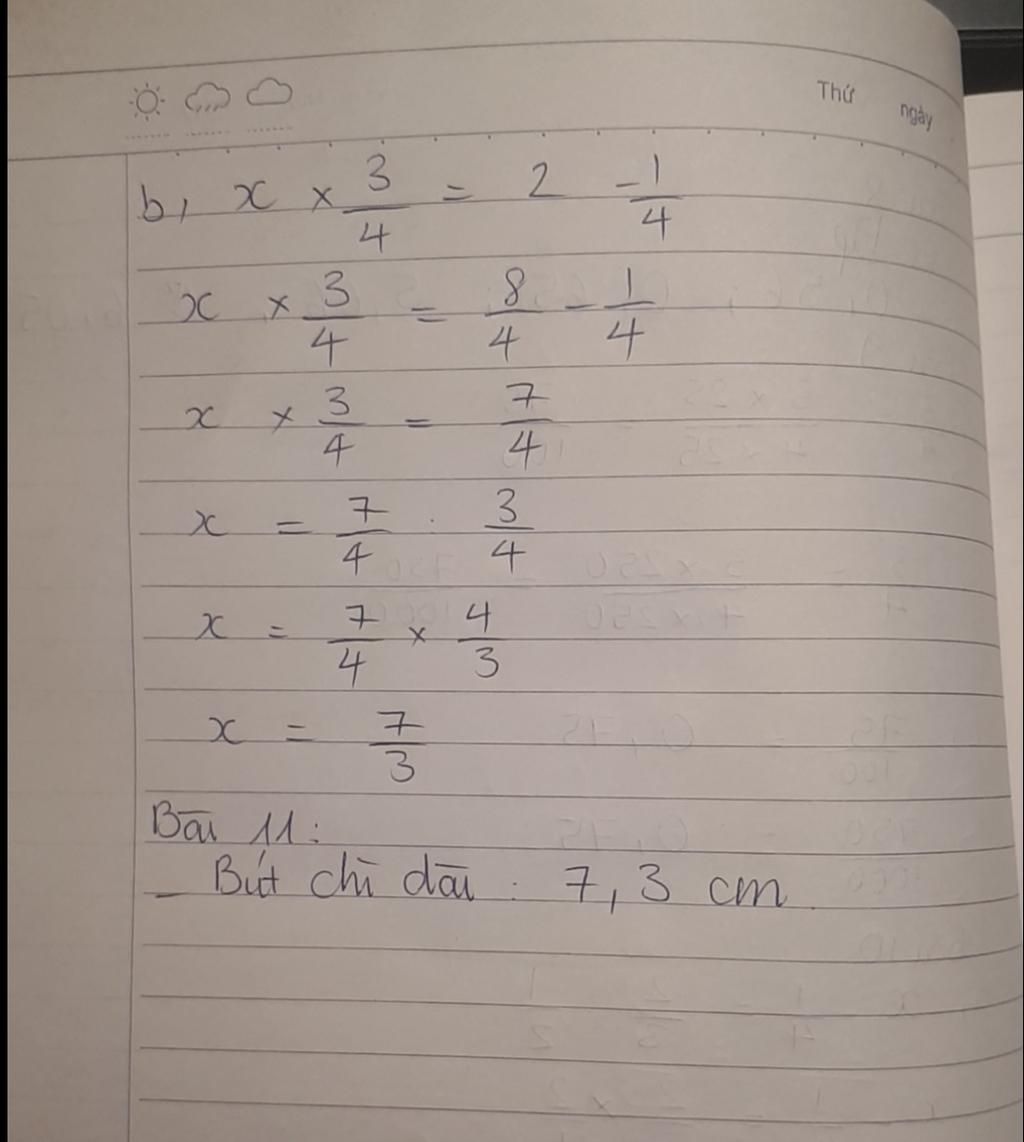 Thứ ngày
b, x × 3/4 = 2 - 1/4
x × 3/4 = 8/4 - 1/4
x × 3/4 = 7/4
x = 7/4 : 3/4
x = 7/4 × 4/3
x = 7/3
Bài 11:
- Bút chì dài : 7,3 cm.